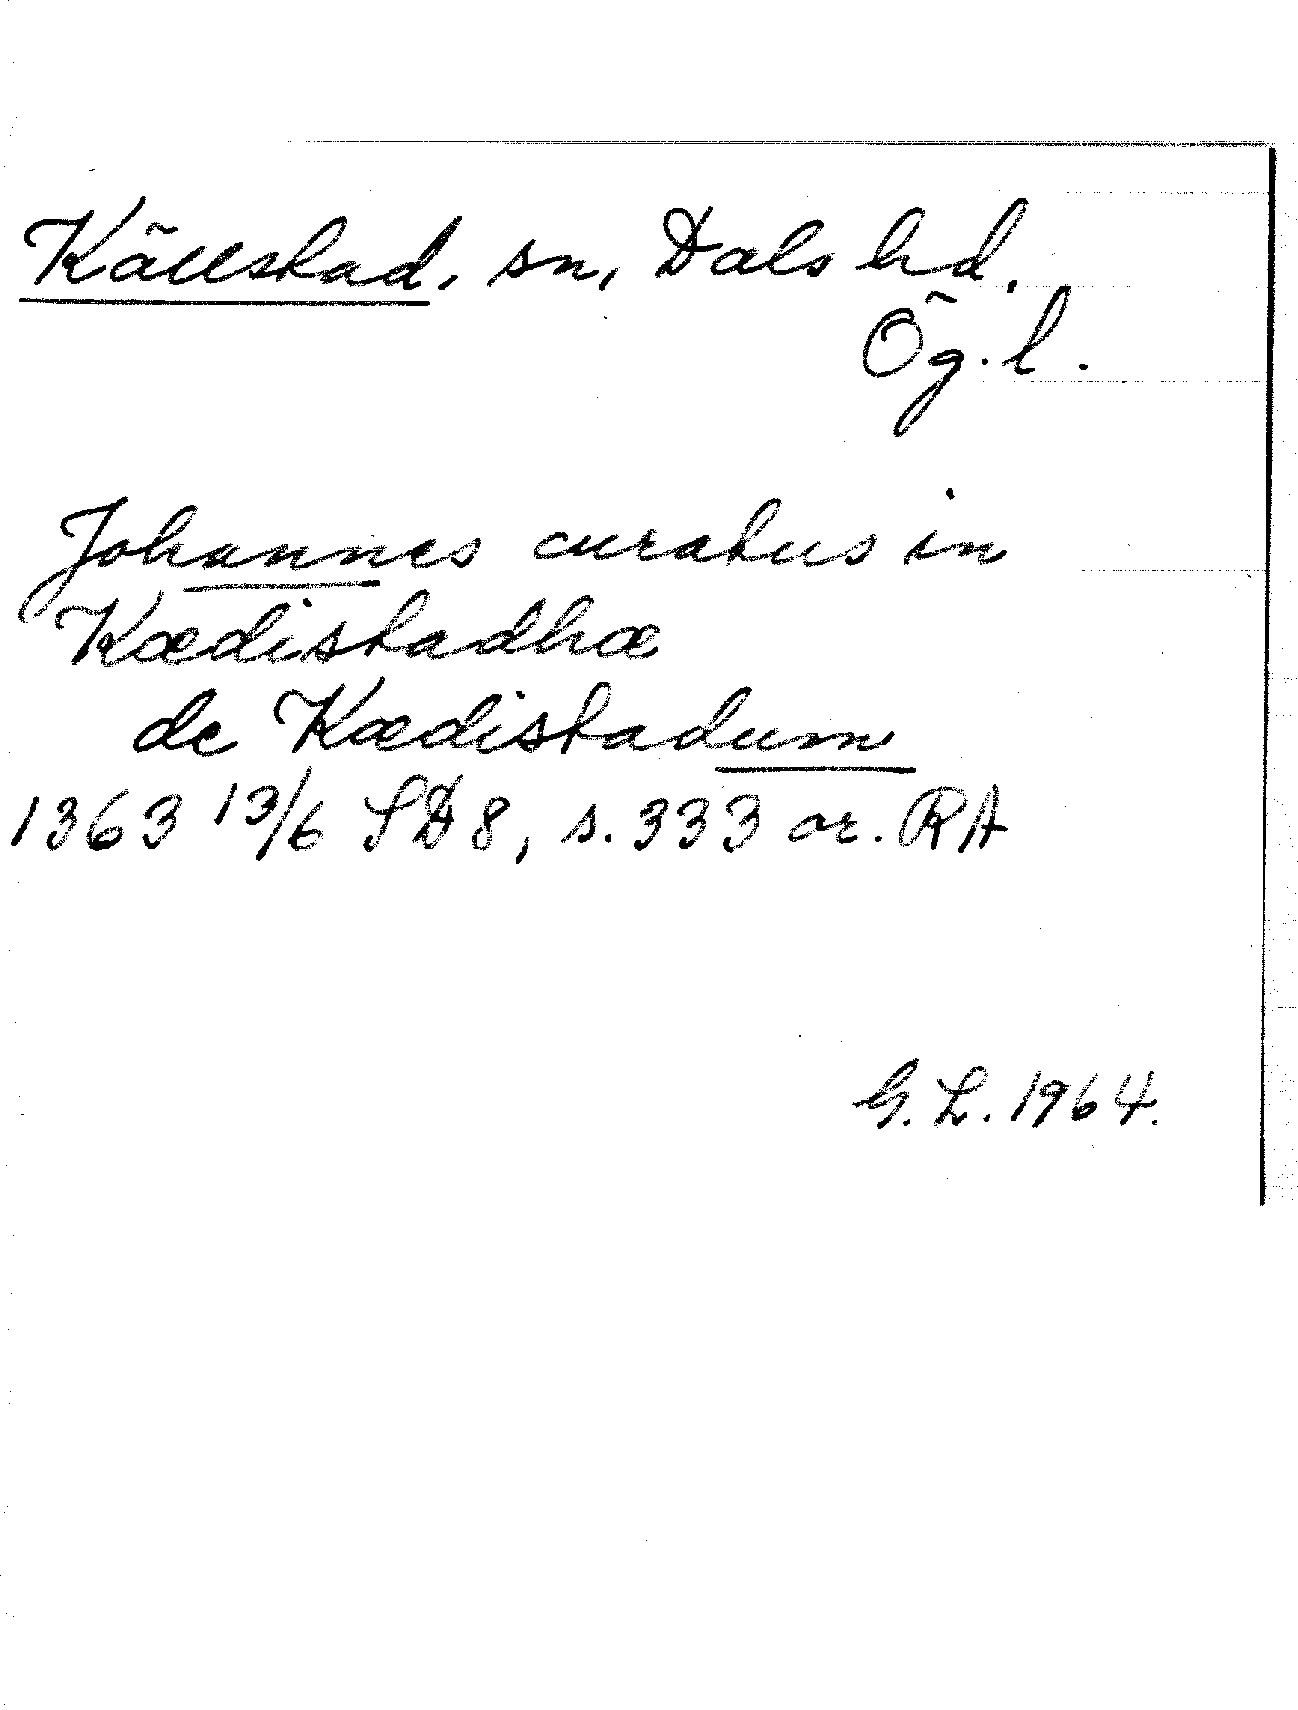 Källstad, sn, Dals hd.
Ög. l.
Johannes curatus in
Kædistadhæ
de Kædistadum
1363 13/6 SD 8, s. 333 or. RA
G. L. 1964.